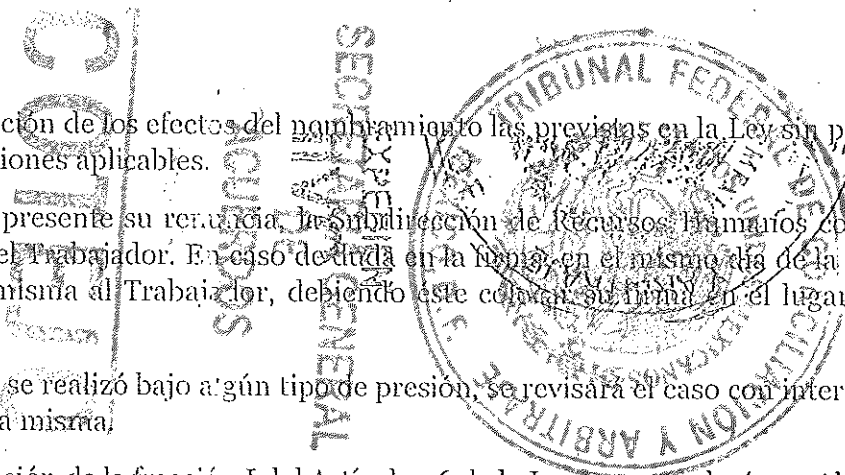 ción de los efectos del nombramiento las previstas en la Ley sin p
iones aplicables.
presente su renuncia, la Subdirección de Recursos Humanos co
el Trabajador. En caso de duda en la firma, en el mismo día de la
misma al Trabajador, debiendo éste colocar su firma en el lugar
se realizó bajo algún tipo de presión, se revisará el caso con inter
a misma.
ción de la fracción I del Artículo 46 de la Ley
COTEJADO
SECRETARIA GENERAL
ACUERDOS
TRIBUNAL FEDERAL DE CONCILIACIÓN Y ARBITRAJE
MEXICANOS